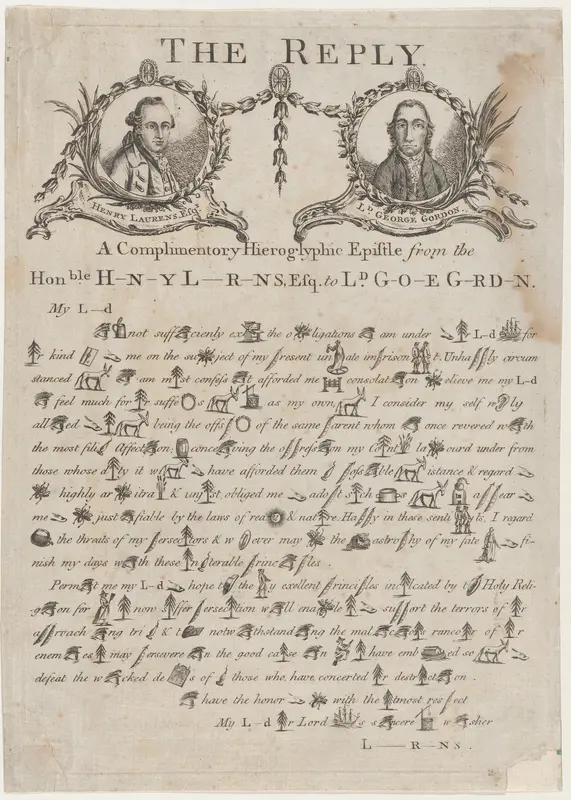 THE REPLY.
HENRY LAURENS, Esqr.
LD. GEORGE GORDON.
A Complimentory Hieroglyphic Epistle from the
Honble H–N–Y L––R–NS, Esq. to LD G–O–E G–RD–N.
My L–d
not suff cienly ex the o ligations am under L–d for
r kind me on the su ject of my resent un ate im rison t. Unha ily circum
stanced am m st confess t afforded me consolat on elieve me my L–d
feel much for suffe s as my own, I consider my self m ly
all ed being the offs of the same arent whom once revered w th
the most fili Affect on conce ving the o ress on my Co nt la ourd under from
those whose ty it w have afforded them oss ble istance & regard
highly ar itra & un st obliged me ado t s ch s a ear
me just fiable by the laws of rea & nat re. Ha y in these senti ts, I regard
the threats of my erse tors & w ever may the astro hy of my fate fi-
nish my days w th these n terable rinc les.
Perm t me my L–d ho e the y exellent rinci les in lcated by t Holy Reli-
g on for now ffer erse tion w ll ena le su ort the terrors of r
a roach ng tri & t notw thstand ng the mal c s ranco r of r
enem es may ersevere n the good ca se n have emb ed so
defeat the w cked de s of those who have concerted r destr t on.
have the honor with the tmost res ect
My L–d r Lord s s ncere w sher
L––R–NS.